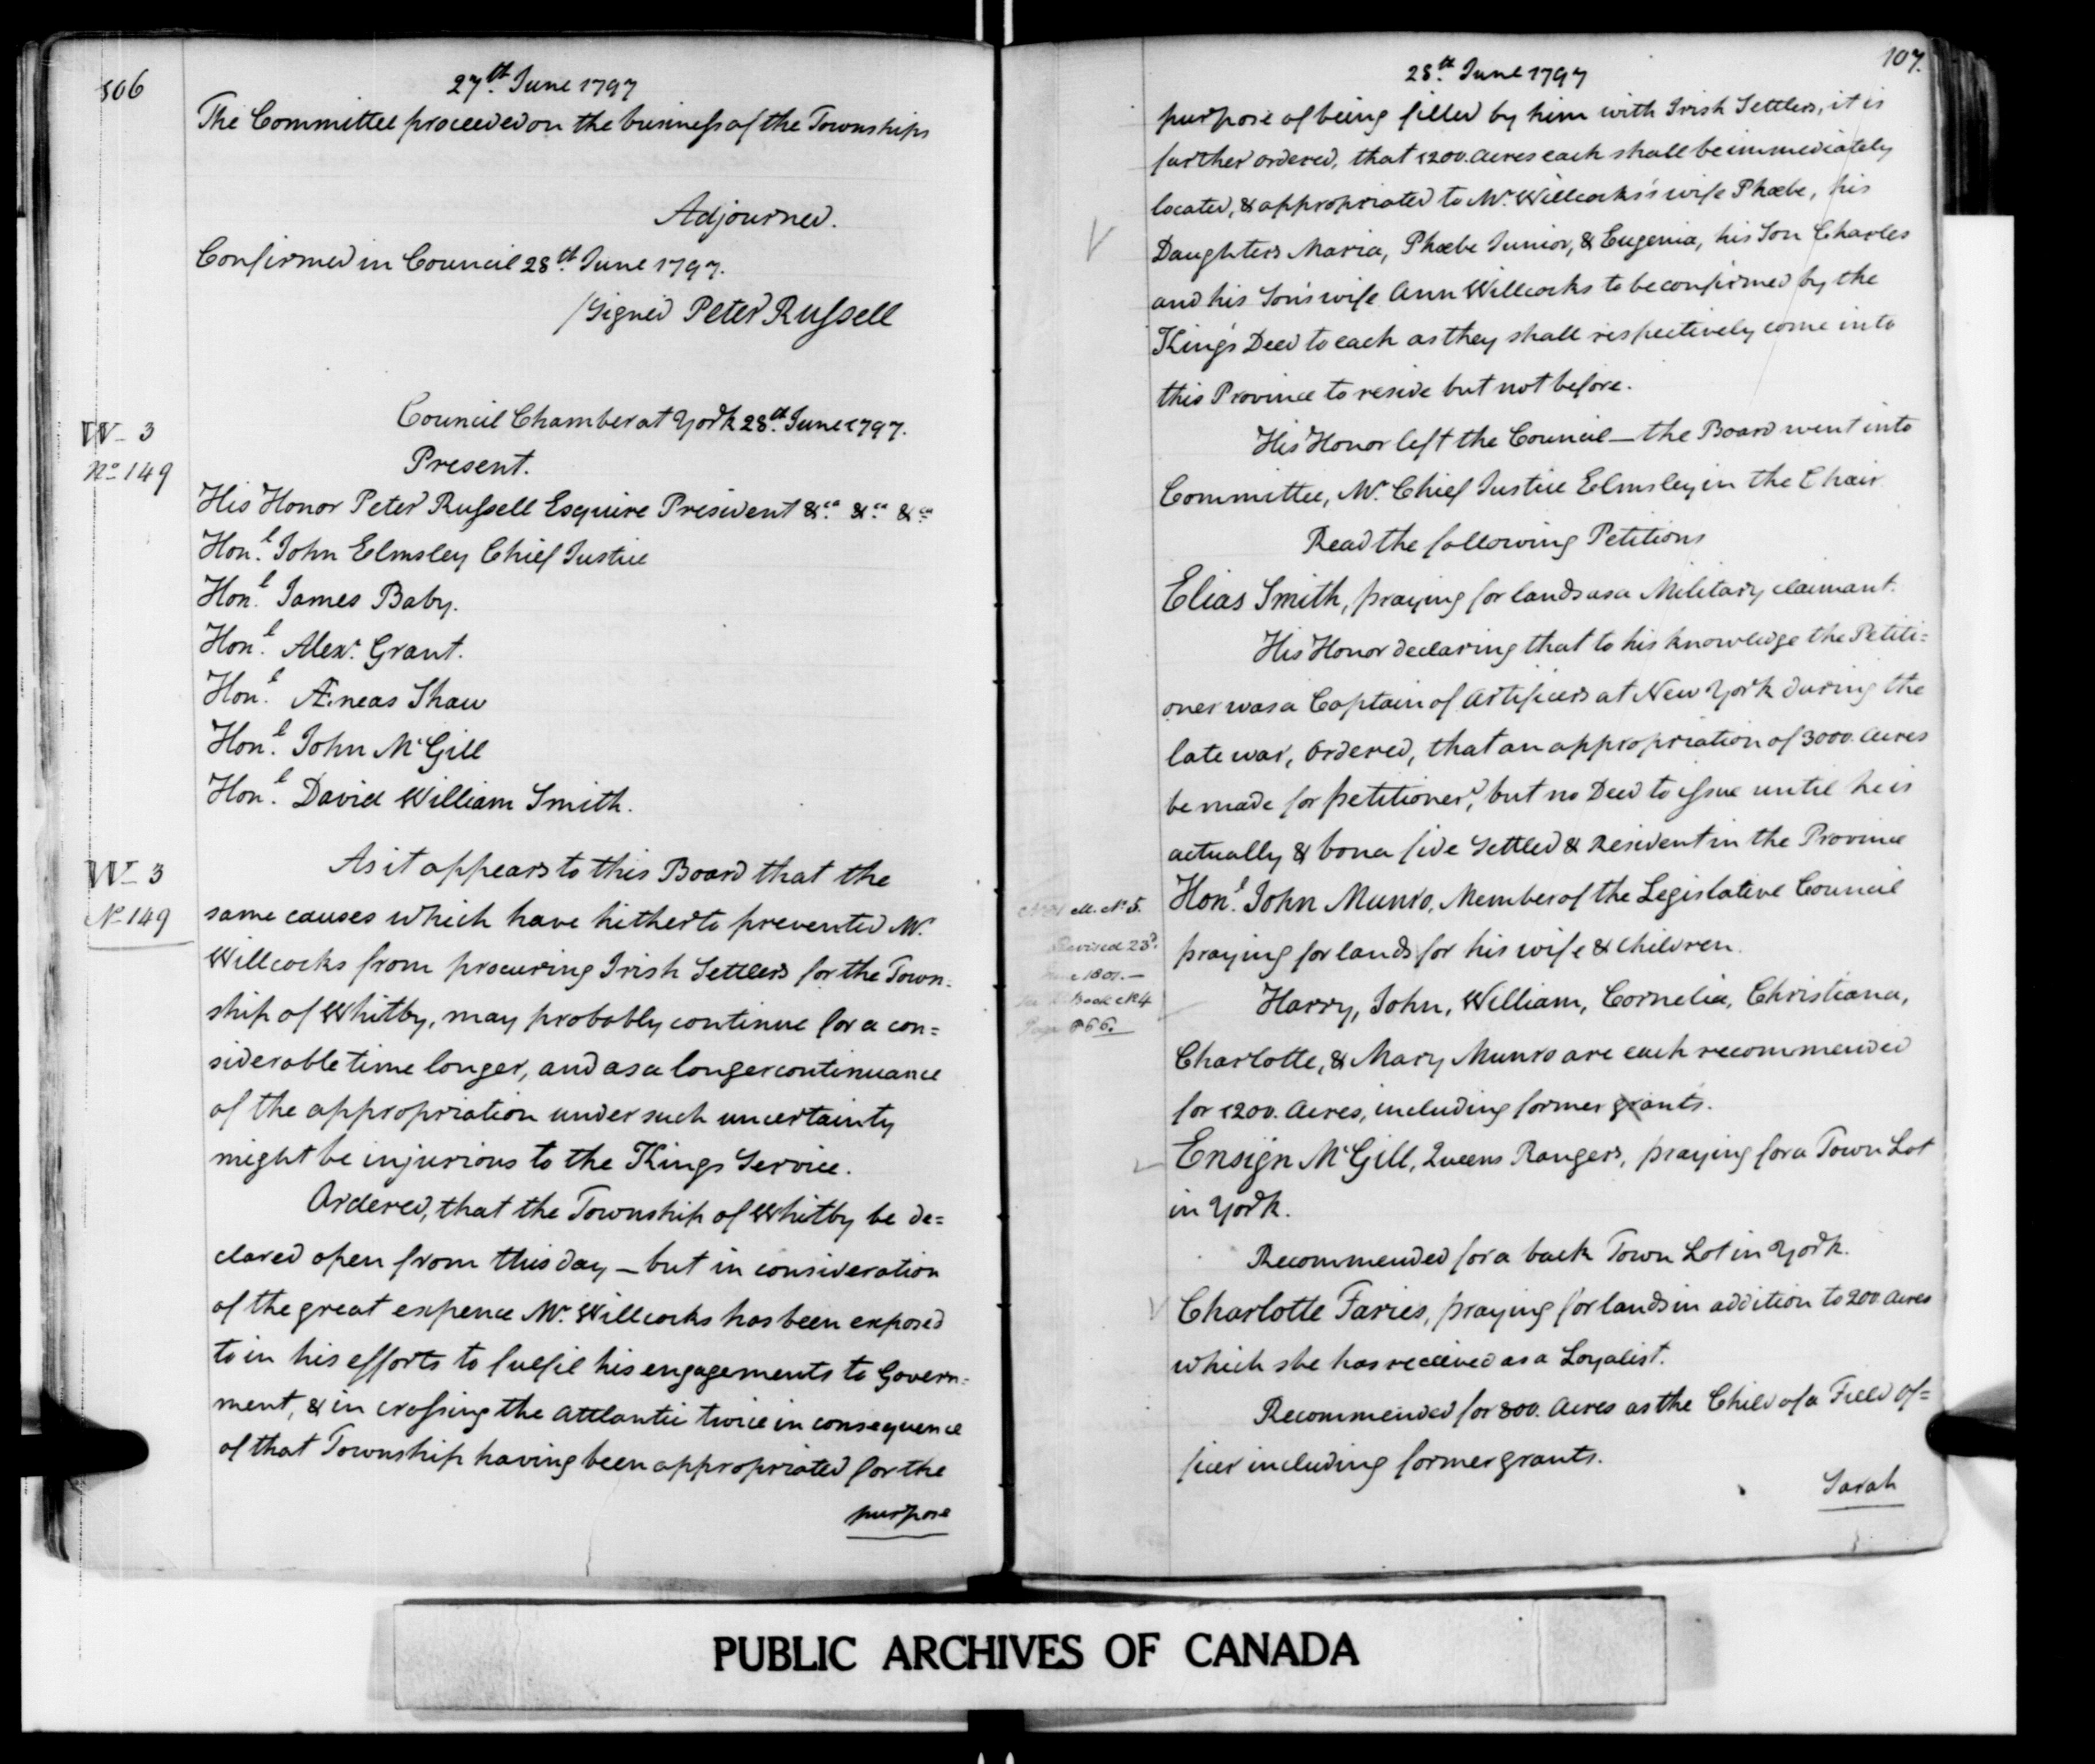 106
27th June 1797
The Committee proceeded on the businefs of the Townships
Adjourned.
Confirmed in Council 28th June 1797.
/Signed Peter Rufsell
W- 3
No 149
Council Chamber at York 28th June 1797.
Present.
His Honor Peter Rufsell Esquire President &ca &ca &ca
Honl John Elmsley Chief Justice
Honl James Baby.
Honl Alexr Grant.
Honl Æneas Shaw
Honl John McGill
Honl David William Smith.
W- 3
No 149
As it appears to this Board that the
same causes which have hitherto prevented Mr
Willcocks from procuring Irish Settlers for the Town-
ship of Whitby, may probably continue for a con=
siderable time longer, and as a longer continuance
of the appropriation under such uncertainty
might be injurious to the Kings Service.
Ordered, that the Township of Whitby be de=
clared open from this day — but in consideration
of the great expence Mr Willcocks has been exposed
to in his efforts to fulfil his engagements to Govern=
ment, & in crofsing the Attlantic twice in consequence
of that Township having been appropriated for the
purpose
107.
28th June 1797
purpose of being filled by him with Irish Settlers, it is
further ordered, that 1200. acres each shall be immediately
located, & appropriated to Mr Willcocks's wife Phœbe, his
Daughters Maria, Phœbe Junior, & Eugenia, his Son Charles
and his Son's wife Ann Willcocks to be confirmed by the
King's Deed to each as they shall respectively come into
this Province to reside but not before.
His Honor left the Council — the Board went into
Committee, Mr Chief Justice Elmsley in the Chair.
Read the following Petitions
Elias Smith, praying for lands as a Military claimant.
His Honor declaring that to his knowledge the Petiti=
oner was a Captain of Artificers at New York during the
late war, Ordered, that an appropriation of 3000. acres
be made for petitioner, but no Deed to ifsue until he is
actually & bona fide Settled & Resident in the Province
M. No 5.
Revised 23d
1801.—
Book
Page 866.
Honl John Munro, Member of the Legislative Council
praying for lands for his wife & children.
Harry, John, William, Cornelia, Christiana,
Charlotte, & Mary Munro are each recommended
for 1200. Acres, including former grants.
Ensign McGill, Queens Rangers, praying for a Town Lot
in York.
Recommended for a back Town Lot in York.
Charlotte Faries, praying for lands in addition to 200 acres
which she has received as a Loyalist.
Recommended for 800. Acres as the Child of a Field Of=
ficer including former grants.
Sarah
PUBLIC ARCHIVES OF CANADA